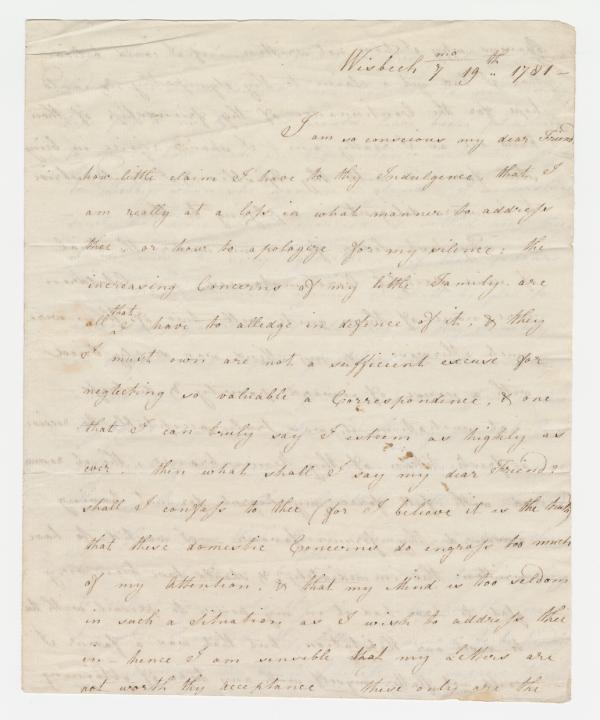 Wisbech 7 mo 19th 1781 -
I am so conscious my dear Friend
how little claim I have to thy Indulgence, that I
am really at a loss in what manner to address
thee, or how to apologize for my silence; the
increasing Concerns of my little Family are
all that I have to alledge in defence of it, & they
I must own are not a sufficient excuse for
neglecting so valuable a Correspondence, & one
that I can truly say I esteem as highly as
ever. then what shall I say my dear Friend?
shall I confess to thee (for I believe it is the truth)
that these domestic Concerns do engross too much
of my Attention, & that my Mind is too seldom
in such a Situation as I wish to address thee
in. hence I am sensible that my Letters are
not worth thy acceptance these only are the